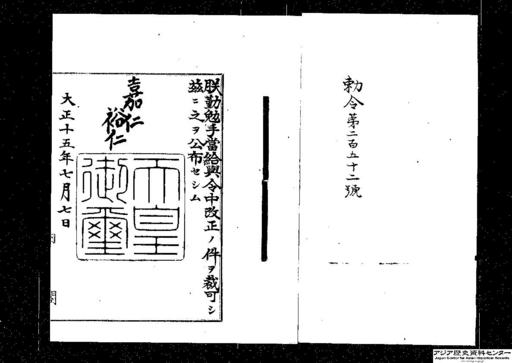 勅令第二百五十二號
朕勤勉手當給與令中改正ノ件ヲ裁可シ
茲ニ之ヲ公布セシム
嘉仁
裕仁
天皇
御璽
大正十五年七月七日
アジア歴史資料センター
Japan Center for Asian Historical Records